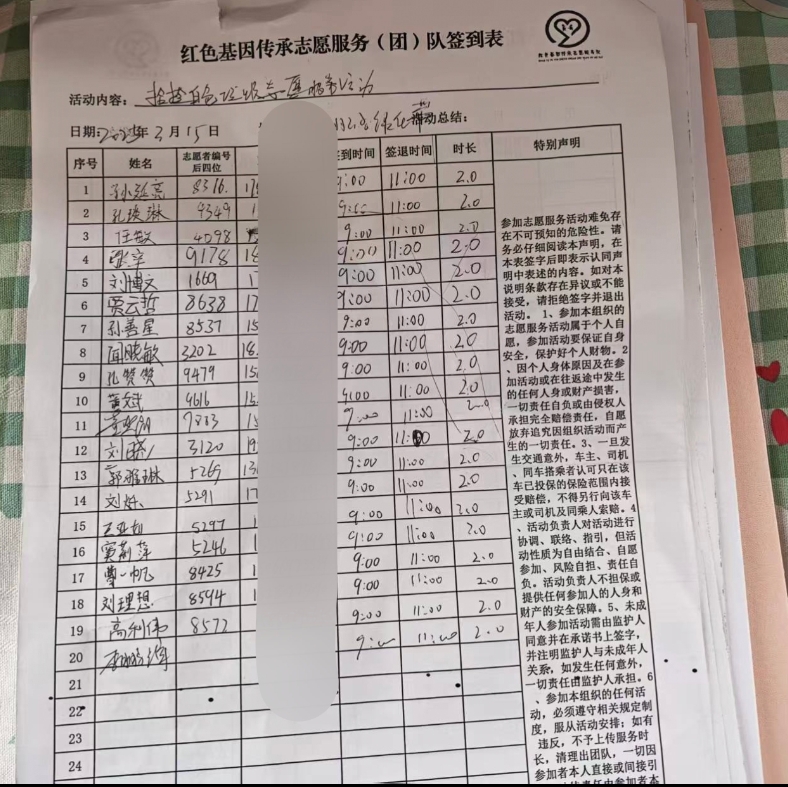 红色基因传承志愿服务（团）队签到表
活动内容：捡拾白色垃圾志愿服务活动
日期：2025年3月15日 动总结：
序号 姓名 志愿者编号后四位 到时间 签退时间 时长 特别声明
1 8316. 9:00 11:00 2.0
2 孔瑛琳 9349 9:00 11:00 2.0
3 任敏 4098 9:00 11:00 2.0
4 9178 9:00 11:00 2.0
5 刘博文 1669 9:00 11:00 2.0
6 贾云哲 8638 9:00 11:00 2.0
7 孙善星 8537 9:00 11:00 2.0
8 闻晓敏 3202 9:00 11:00 2.0
9 孔赞赞 9479 9:00 11:00 2.0
10 黄斌 4616 9:00 11:00 2.0
11 7883 9:00 11:00 2.0
12 刘晓 3120 9:00 11:00 2.0
13 郭雅琳 5269 9:00 11:00 2.0
14 5291 9:00 11:00 2.0
15 5297 9:00 11:00 2.0
16 5246 9:00 11:00 2.0
17 曹一帆 8425 9:00 11:00 2.0
18 刘理想 8594 9:00 11:00 2.0
19 高利伟 8572 9:00 11:00 2.0
20 9:00 11:00 2.0
21
22
23
24
参加志愿服务活动难免存
在不可预知的危险性。请
务必仔细阅读本声明，在
本表签字后即表示认同声
明中表述的内容。如对本
说明条款存在异议或不能
接受，请拒绝签字并退出
活动。1、参加本组织的
志愿服务活动属于个人自
愿，参加活动要保证自身
安全，保护好个人财物。2
、因个人身体原因及在参
加活动或在往返途中发生
的任何人身或财产损害，
一切责任自负或由侵权人
承担完全赔偿责任，自愿
放弃追究因组织活动而产
生的一切责任。3、一旦发
生交通意外，车主、司机
、同车搭乘者认可只在该
车已投保的保险范围内接
受赔偿，不得另行向该车
主或司机及同乘人索赔。4
、活动负责人对活动进行
协调、联络、指引，但活
动性质为自由结合、自愿
参加、风险自担、责任自
负。活动负责人不担保或
提供任何参加人的人身和
财产的安全保障。5、未成
年人参加活动需由监护人
同意并在承诺书上签字，
并注明监护人与未成年人
关系，如发生任何意外，
一切责任由监护人承担。6
、参加本组织的任何活
动，必须遵守相关规定制
度，服从活动安排；如有
违反，不予上传服务时
长，清理出团队，一切因
参加者本人直接或间接引